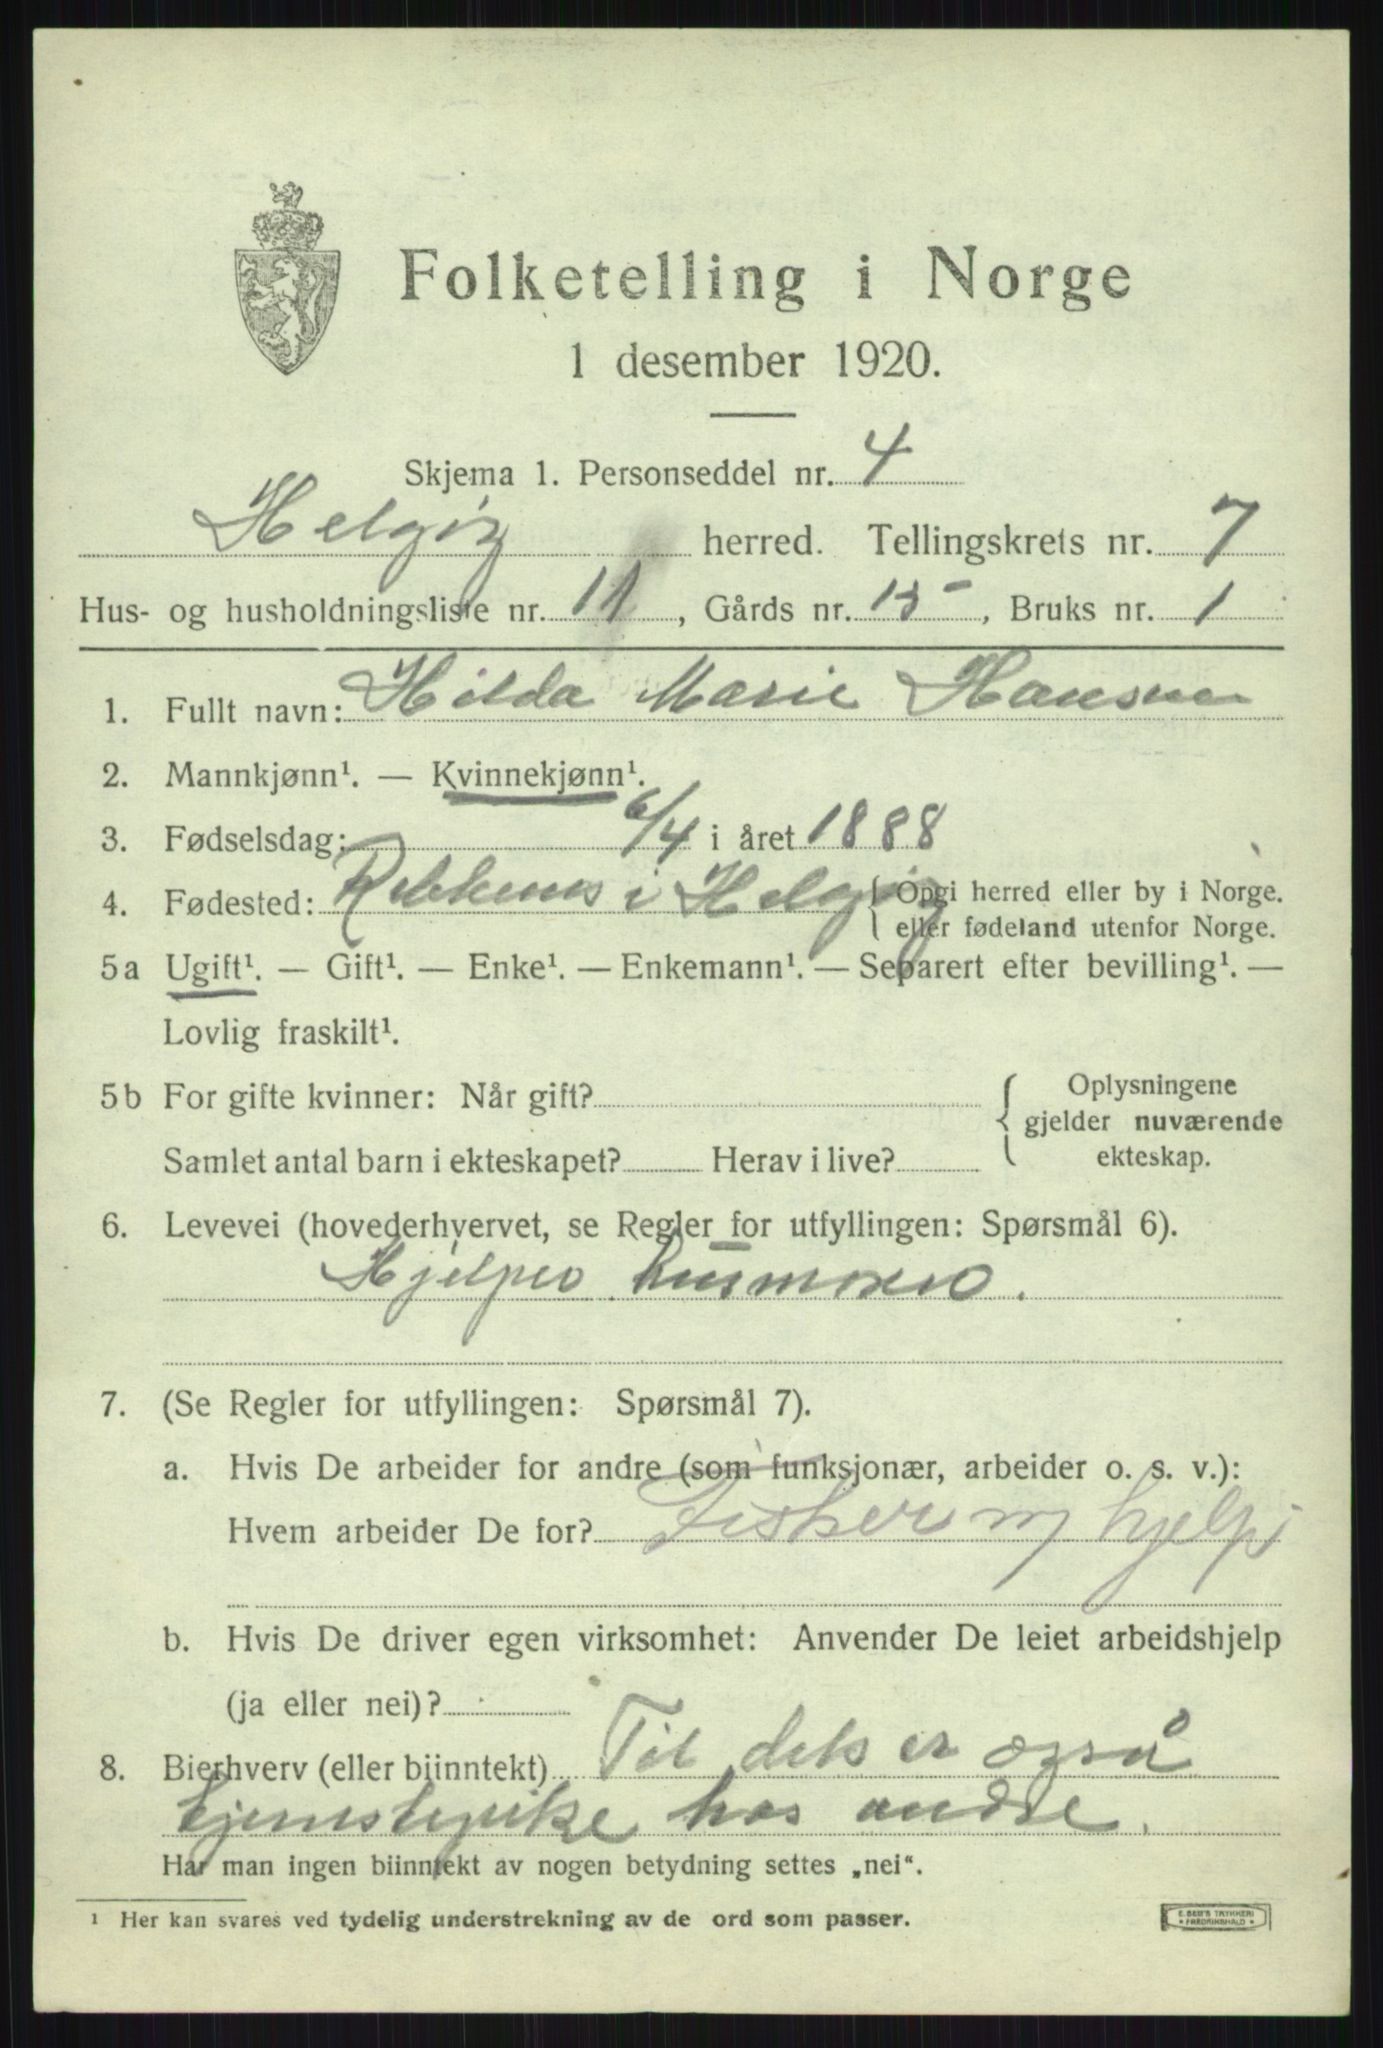 Folketelling i Norge
1 desember 1920.
Skjema 1. Personseddel nr. 4
Helgøy herred. Tellingskrets nr. 7
Hus- og husholdningsliste nr. 11, Gårds nr. 15, Bruks nr. 1
1. Fullt navn: Hilda Marie Hansen
2. Mannkjønn¹. — Kvinnekjønn¹.
3. Fødselsdag: 6/4 i året 1888
4. Fødested: i Helgøy { Opgi herred eller by i Norge.
eller fødeland utenfor Norge.
5a Ugift¹. — Gift¹. — Enke¹. — Enkemann¹. — Separert efter bevilling¹. —
Lovlig fraskilt¹.
5b For gifte kvinner: Når gift? { Oplysningene
gjelder nuværende
Samlet antal barn i ekteskapet? Herav i live? ekteskap.
6. Levevei (hovederhvervet, se Regler for utfyllingen: Spørsmål 6).
Hjelper husmoren.
7. (Se Regler for utfyllingen: Spørsmål 7).
a. Hvis De arbeider for andre (som funksjonær, arbeider o. s. v.):
Hvem arbeider De for? Fisker m/ hjelp
b. Hvis De driver egen virksomhet: Anvender De leiet arbeidshjelp
(ja eller nei)?
8. Bierhverv (eller biinntekt) Til dels er også
tjenestepike hos andre.
Har man ingen biinntekt av nogen betydning settes „nei“.
¹ Her kan svares ved tydelig understrekning av de ord som passer.